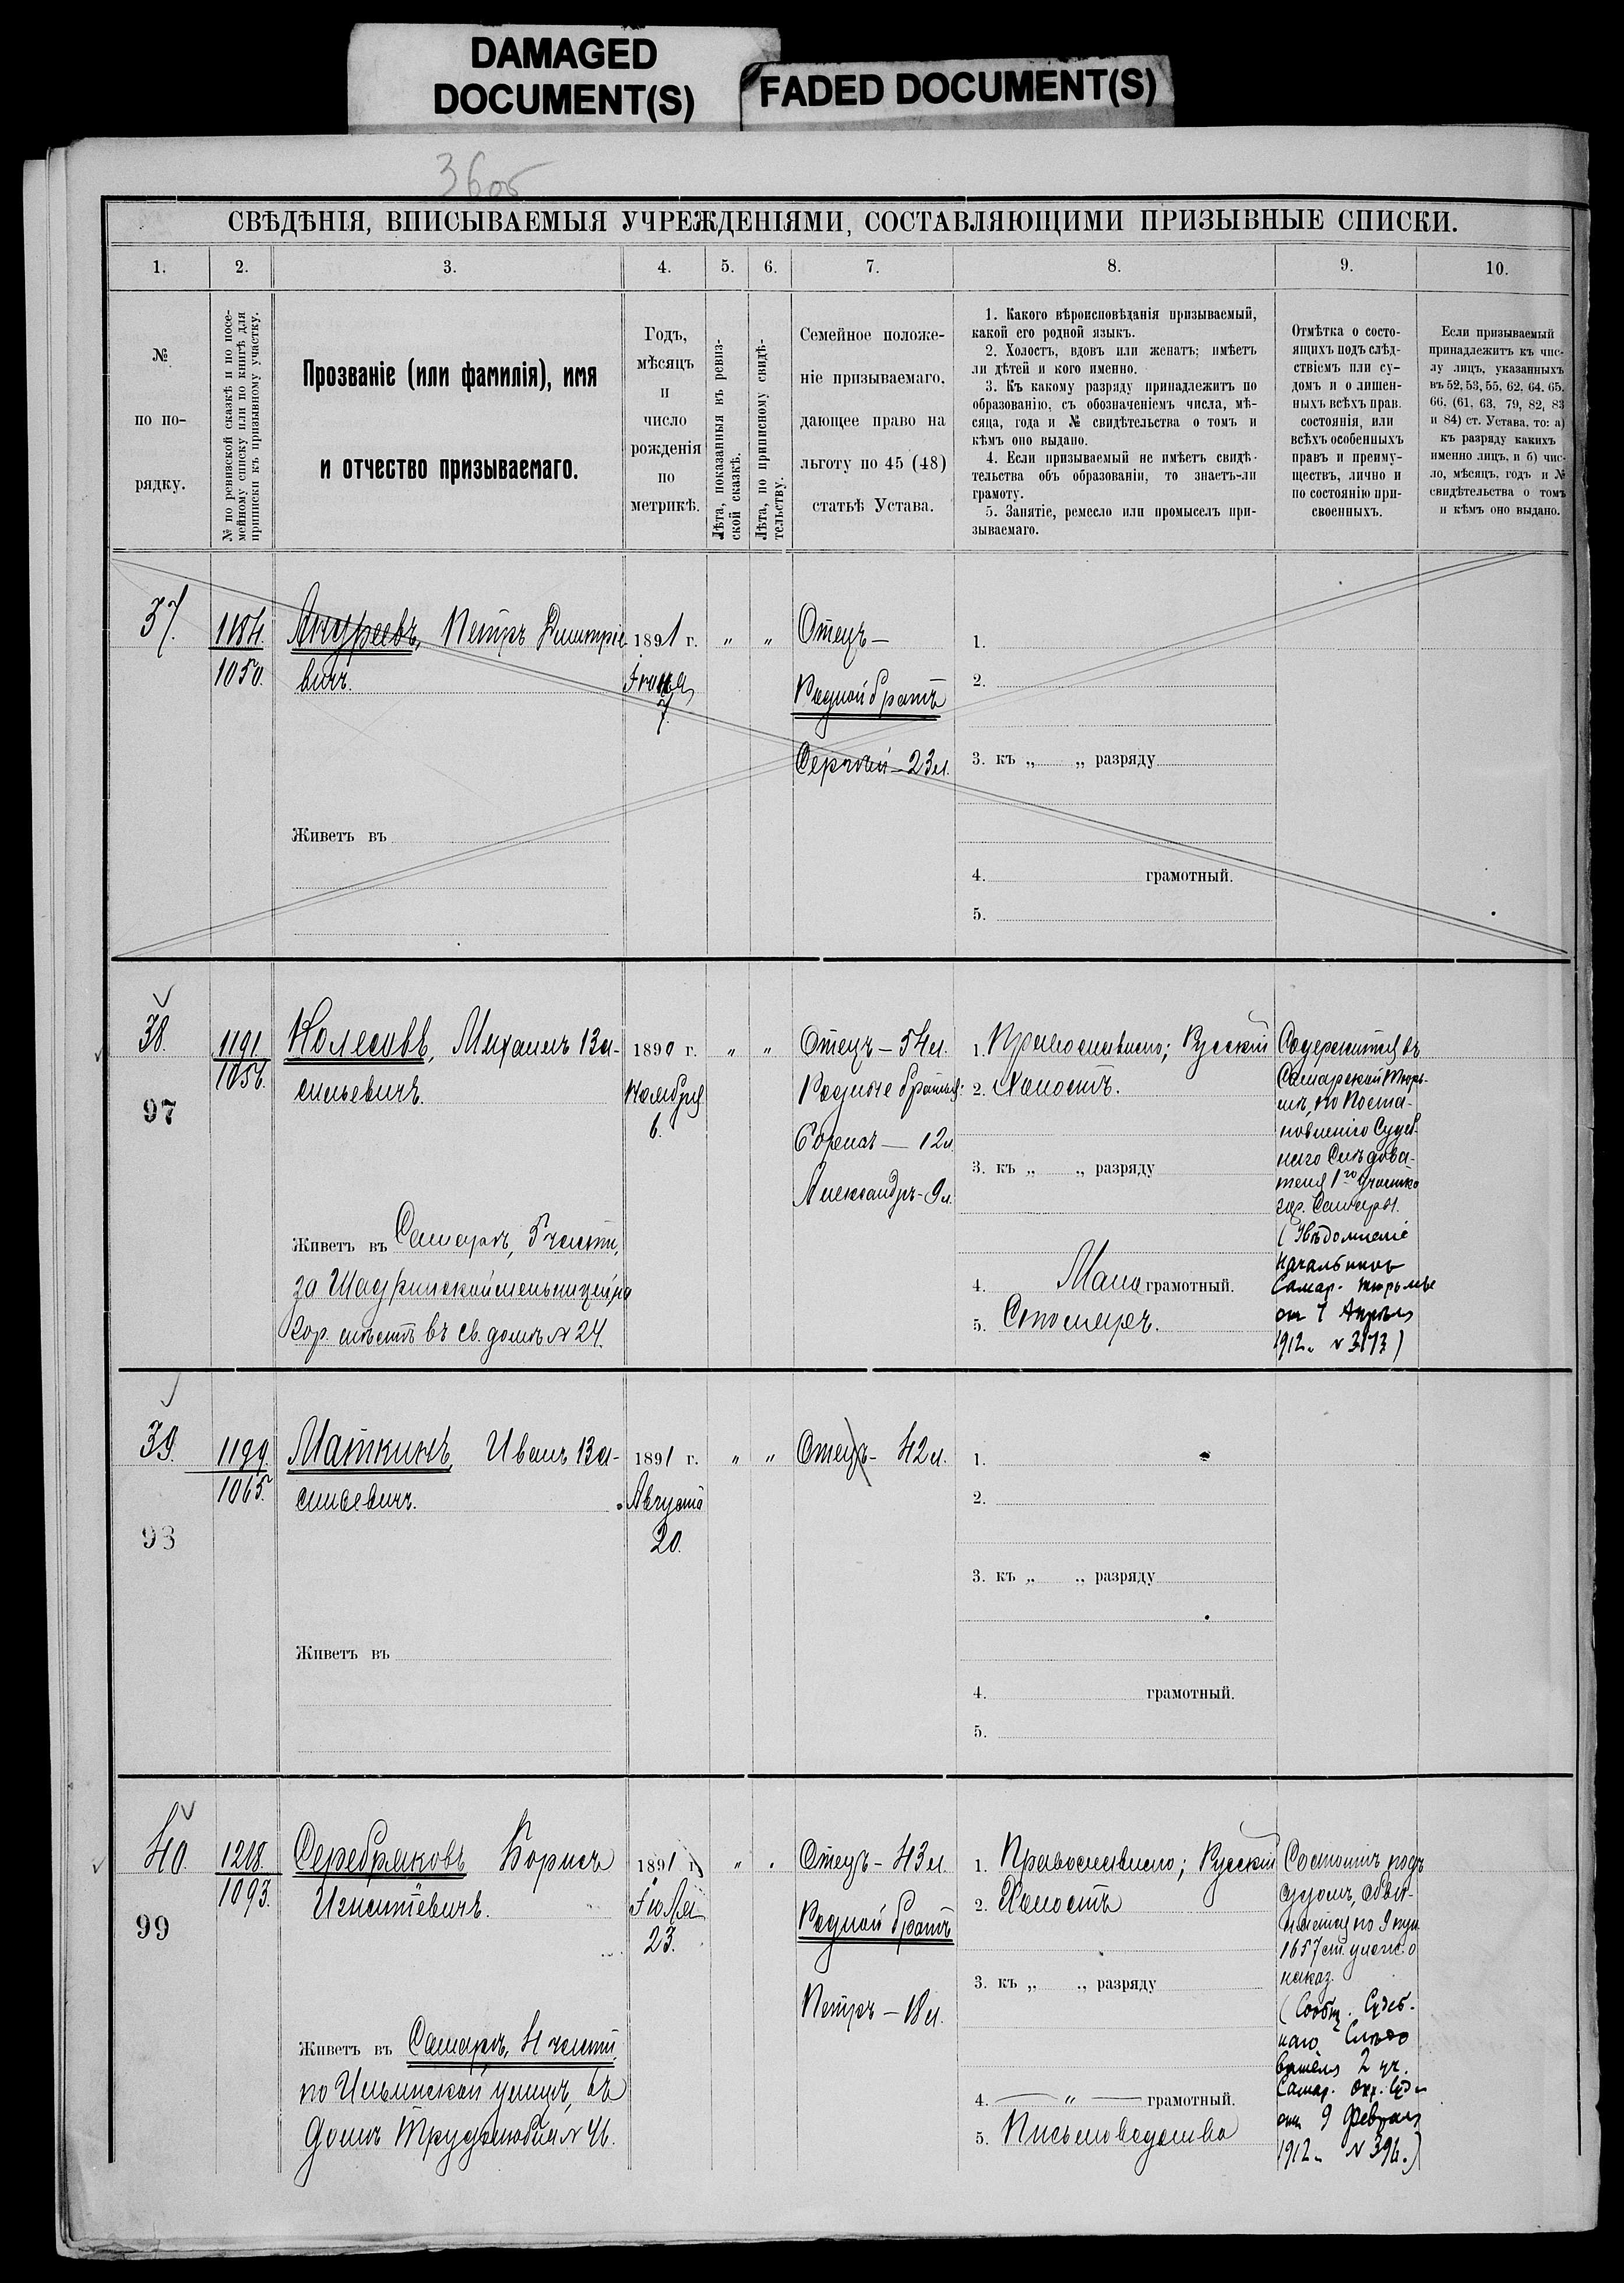 DAMAGED
DOCUMENT(S)
FADED DOCUMENT(S)
36об
СВѢДѢНІЯ, ВПИСЫВАЕМЫЯ УЧРЕЖДЕНІЯМИ, СОСТАВЛЯЮЩИМИ ПРИЗЫВНЫЕ СПИСКИ.
1. 2. 3. 4. 5. 6. 7. 8. 9. 10.
№
по по-
рядку.
№ по ревизской сказкѣ и по посе-
мейному списку или по книгѣ для
приписки къ призывному участку.
Прозваніе (или фамилія), имя
и отчество призываемаго.
Годъ,
мѣсяцъ
и
число
рожденія
по
метрикѣ.
Лѣта, показанныя въ ревиз-
ской сказкѣ.
Лѣта, по приписному свидѣ-
тельству.
Семейное положе-
ніе призываемаго,
дающее право на
льготу по 45 (48)
статьѣ Устава.
1. Какого вѣроисповѣданія призываемый,
какой его родной языкъ.
2. Холостъ, вдовъ или женатъ; имѣетъ
ли дѣтей и кого именно.
3. Къ какому разряду принадлежитъ по
образованію, съ обозначеніемъ числа, мѣ-
сяца, года и № свидѣтельства о томъ и
кѣмъ оно выдано.
4. Если призываемый не имѣетъ свидѣ-
тельства объ образованіи, то знаетъ-ли
грамоту.
5. Занятіе, ремесло или промыселъ при-
зываемаго.
Отмѣтка о состо-
ящихъ подъ слѣд-
ствіемъ или су-
домъ и о лишен-
ныхъ всѣхъ прав.
состоянія, или
всѣхъ особенныхъ
правъ и преиму-
ществъ, лично и
по состоянію при-
своенныхъ.
Если призываемый
принадлежитъ къ чис-
лу лицъ, указанныхъ
въ 52, 53, 55, 62, 64, 65,
66, (61, 63, 79, 82, 83
и 84) ст. Устава, то: а)
къ разряду какихъ
именно лицъ, и б) чис-
ло, мѣсяцъ, годъ и №
свидѣтельства о томъ
и кѣмъ оно выдано.
37.
1184.
1050.
Андреевъ, Петръ Дмитріе-
вичъ.
Живетъ въ
1891 г.
Іюня
7.
" "
Отецъ —
Родной братъ
Сергѣй — 23 л.
1.
2.
3. къ „ „ разряду
4. грамотный.
5.
38.
97
1191.
1056.
Колесовъ, Михаилъ Ва-
сильевичъ.
Живетъ въ Самарѣ, 5 части,
за Шадринской мельницей, на
Кор. мѣстѣ въ св. домѣ № 24.
1890 г.
Ноября
6.
" "
Отецъ — 54 л.
Родные братья:
Борисъ — 12 л.
Александръ — 9 л.
1. Православнаго; Русскій
2. Холостъ.
3. къ „ „ разряду
4. Мало грамотный.
5. Столяръ.
Содержится въ
Самарской Тюрь-
мѣ, по Поста-
новленію Судеб-
наго Слѣдова-
теля 1го участка
гор. Самары.
(Увѣдомленіе
Начальника
Самар. тюрьмы
от 7 Апрѣля
1912 г. № 3173)
39.
98
1199.
1065.
Маткинъ, Иванъ Ва-
сильевичъ.
Живетъ въ
1891 г.
Августа
20.
" "
Отецъ — 42 л.
1.
2.
3. къ „ „ разряду
4. грамотный.
5.
40.
99
1218.
1093.
Серебряковъ Борисъ
Игнатіевичъ.
Живетъ въ Самарѣ, 4 части,
по Ильинской улицѣ, въ
домѣ Трудолюбія № 46.
1891 г.
Іюля
23.
" "
Отецъ — 43 л.
Родной братъ
Петръ — 18 л.
1. Православнаго; Русскій
2. Холостъ
3. къ „ „ разряду
4. — " — грамотный.
5. Письмоводство
Состоитъ подъ
судомъ, обви-
няется по 9 пун.
1657 ст. улож. о
наказ.
(Сообщ. Судеб-
наго Слѣдо
вателя 2 уч.
Самар. Окр. Суда
от 9 Февраля
1912 г. № 396.)